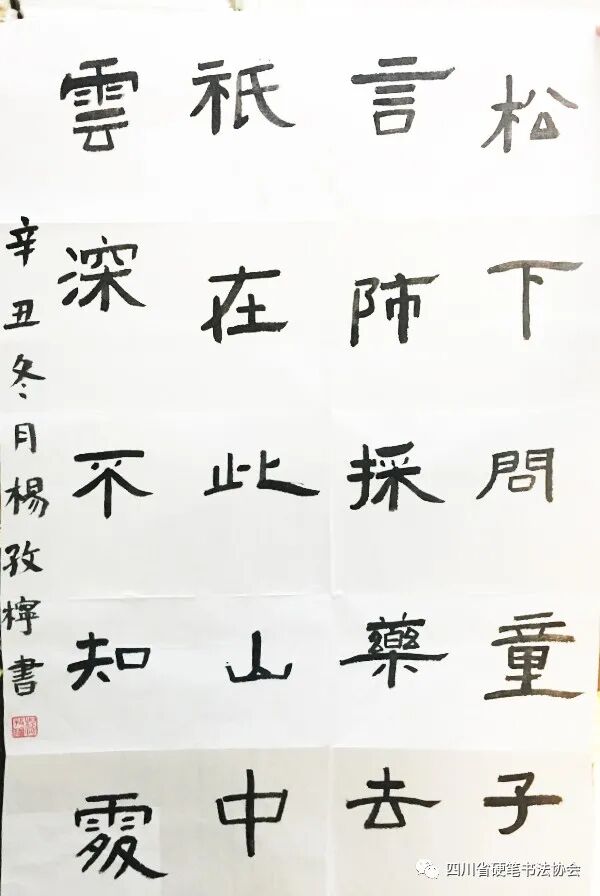 松下問童子
言師採藥去
祇在此山中
雲深不知處
辛丑冬月楊孜檸書
四川省硬笔书法协会